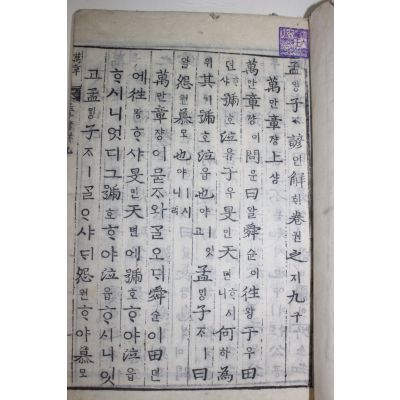 孟ᄆᆡᆼ子ᄌᆞ諺언解ᄒᆡ卷권之지九구
萬만章쟝上샹
萬만章쟝이問문曰왈舜슌이往왕于우田
뎐ᄒᆞ샤號호泣읍于우旻민天텬ᄒᆞ시니何하為
위其기號호泣읍也야ㅣ잇고孟ᄆᆡᆼ子ᄌᆞㅣ曰
왈怨원慕모也야ㅣ시니라
萬만章쟝이묻ᄌᆞ와ᄀᆞᆯ오ᄃᆡ舜슌이田뎐
에往왕ᄒᆞ샤旻민天텬에號호ᄒᆞ야泣읍
ᄒᆞ시니엇디그號호ᄒᆞ야泣읍ᄒᆞ시니잇
고孟ᄆᆡᆼ子ᄌᆞㅣᄀᆞᆯᄋᆞ샤ᄃᆡ怨원ᄒᆞ야慕모